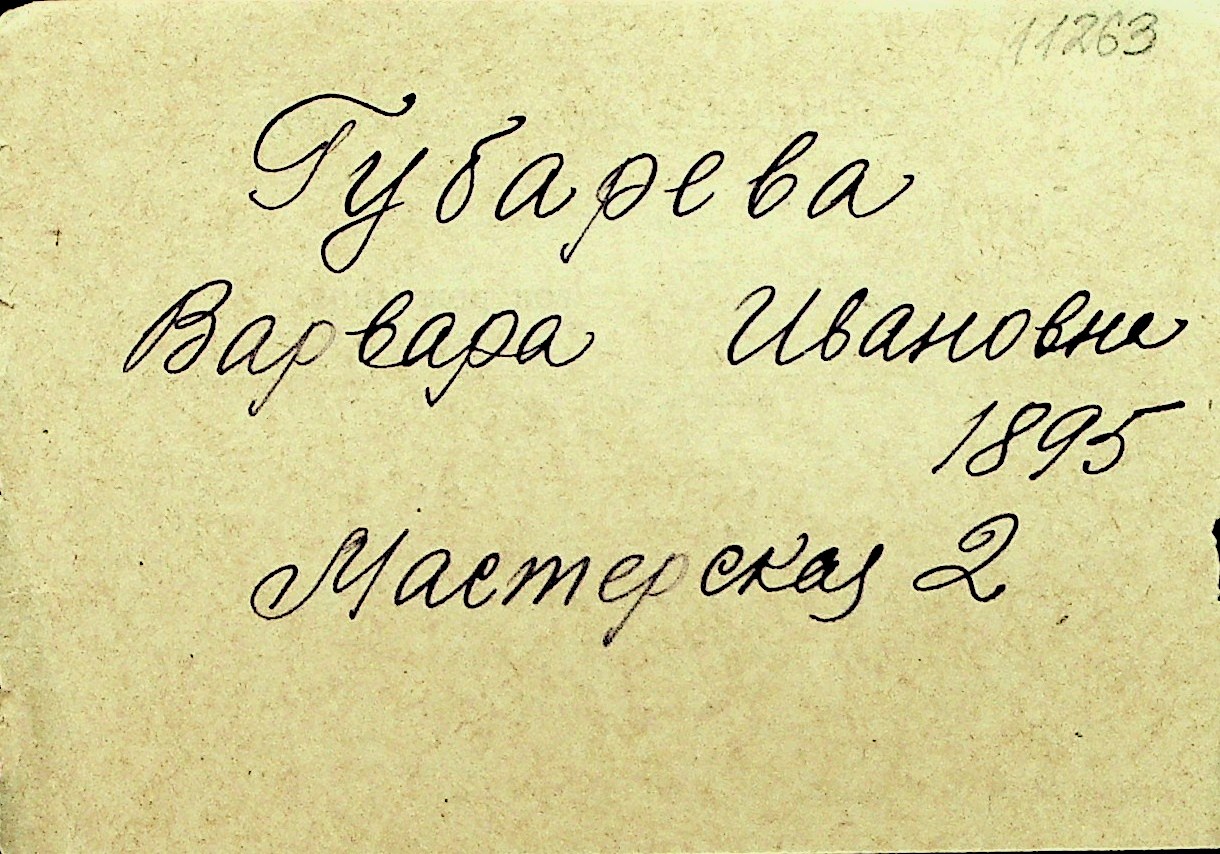 11263
Губарева
Варвара Ивановна
1895
Мастерская 2